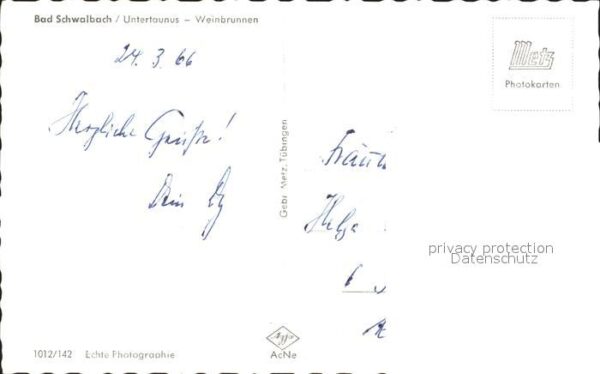 Bad Schwalbach / Untertaunus – Weinbrunnen
24. 3. 66
Herzliche Grüße!
Dein
Metz
Photokarten
Gebr. Metz, Tübingen
Helga
privacy protection
Datenschutz
Agfa
AcNe
1012/142 Echte Photographie